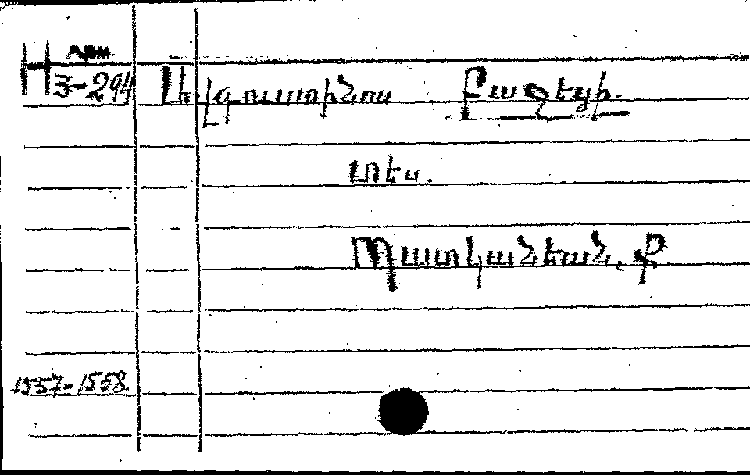 H Арм
3-294 Աւգուստինոս Բաջեցի.
տես.
Պատկանեան. Ք
1557-1558